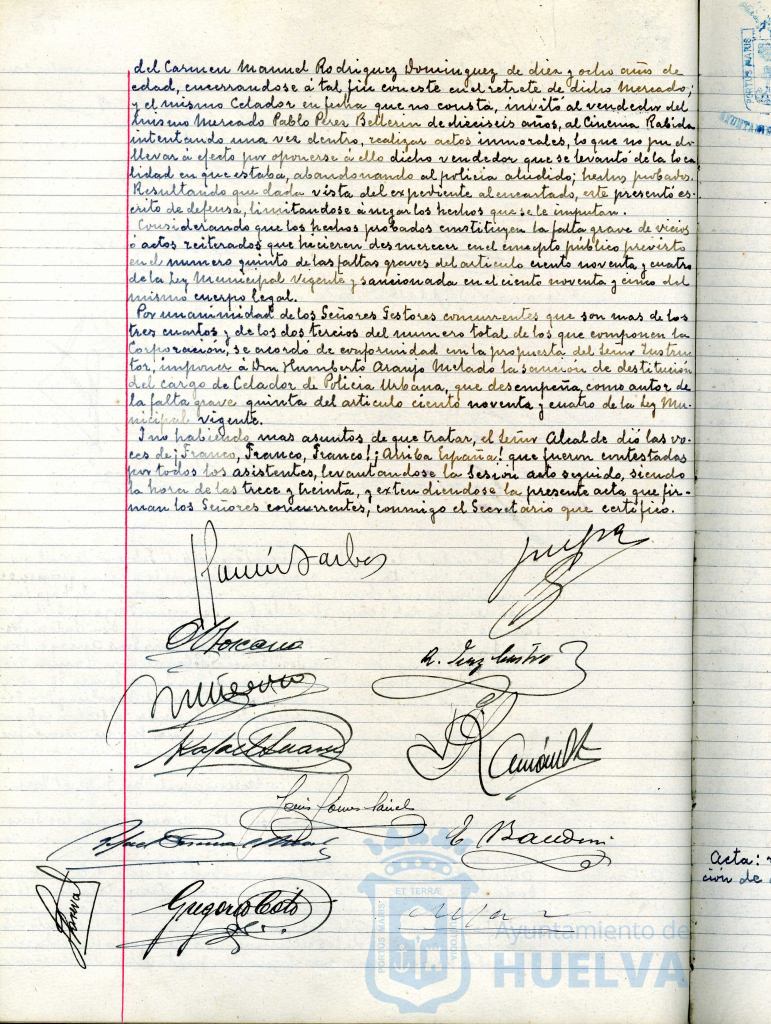 del Carmen Manuel Rodriguez Dominguez de diez y ocho años de
edad, encerrandose á tal fin con este en el retrete de dicho Mercado;
y el mismo Celador en fecha que no consta, invitó al vendedor del
mismo Mercado Pablo Perez Bellerin de dieciseis años, al Cinema Rabida
intentando una vez dentro, realizar actos inmorales, lo que no pudo
llevar á efecto por oponerse á ello dicho vendedor que se levantó de la loca
lidad en que estaba, abandonando al policia aludido; hechos probados.
Resultando que dada vista del expediente al encartado, este presentó es-
crito de defensa, limitandose á negar los hechos que se le imputan.
Considerando que los hechos probados constituyen la falta grave de vicios
ó actos reiterados que hicieren desmerecer en el concepto público previsto
en el numero quinto de las faltas graves del articulo ciento noventa y cuatro
de la Ley Municipal Vigente y sancionada en el ciento noventa y cinco del
mismo cuerpo legal.
Por unanimidad de los Señores Gestores concurrentes que son mas de los
tres cuartos y de los dos tercios del numero total de los que componen la
Corporación, se acordó de conformidad con la propuesta del Señor Instruc-
tor, imponer á Don Humberto Araujo Melado la sanción de destitución
del cargo de Celador de Policia Urbana, que desempeña, como autor de
la falta grave quinta del articulo ciento noventa y cuatro de la Ley Mu-
nicipal vigente.
Y no habiendo mas asuntos de que tratar, el Señor Alcalde dió las vo-
ces de ¡Franco, Franco, Franco! ¡Arriba España! que fueron contestadas
por todos los asistentes, levantandose la Sesión acto seguido, siendo
la hora de las trece y treinta, y extendiendose la presente acta que fir-
man los Señores concurrentes, conmigo el Secretario que certifico.
Rafael Suarez
Ramón
E. Baudin
Gregorio Coto
Acta:
ción de
ET TERRÆ
PORTUS MARIS
Ayuntamiento de
HUELVA